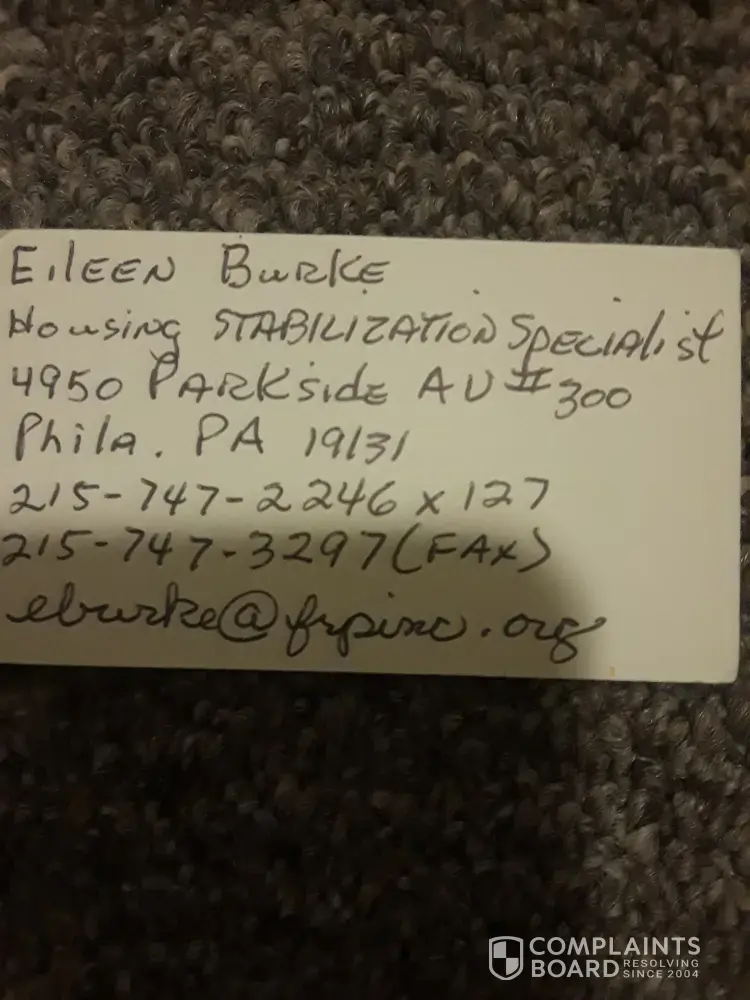 Eileen Burke
Housing STABILIZATION Specialist
4950 Parkside AV #300
Phila. PA 19131
215-747-2246 x 127
215-747-3297 (FAX)
eburke@frpinc.org
COMPLAINTS
BOARD RESOLVING
SINCE 2004